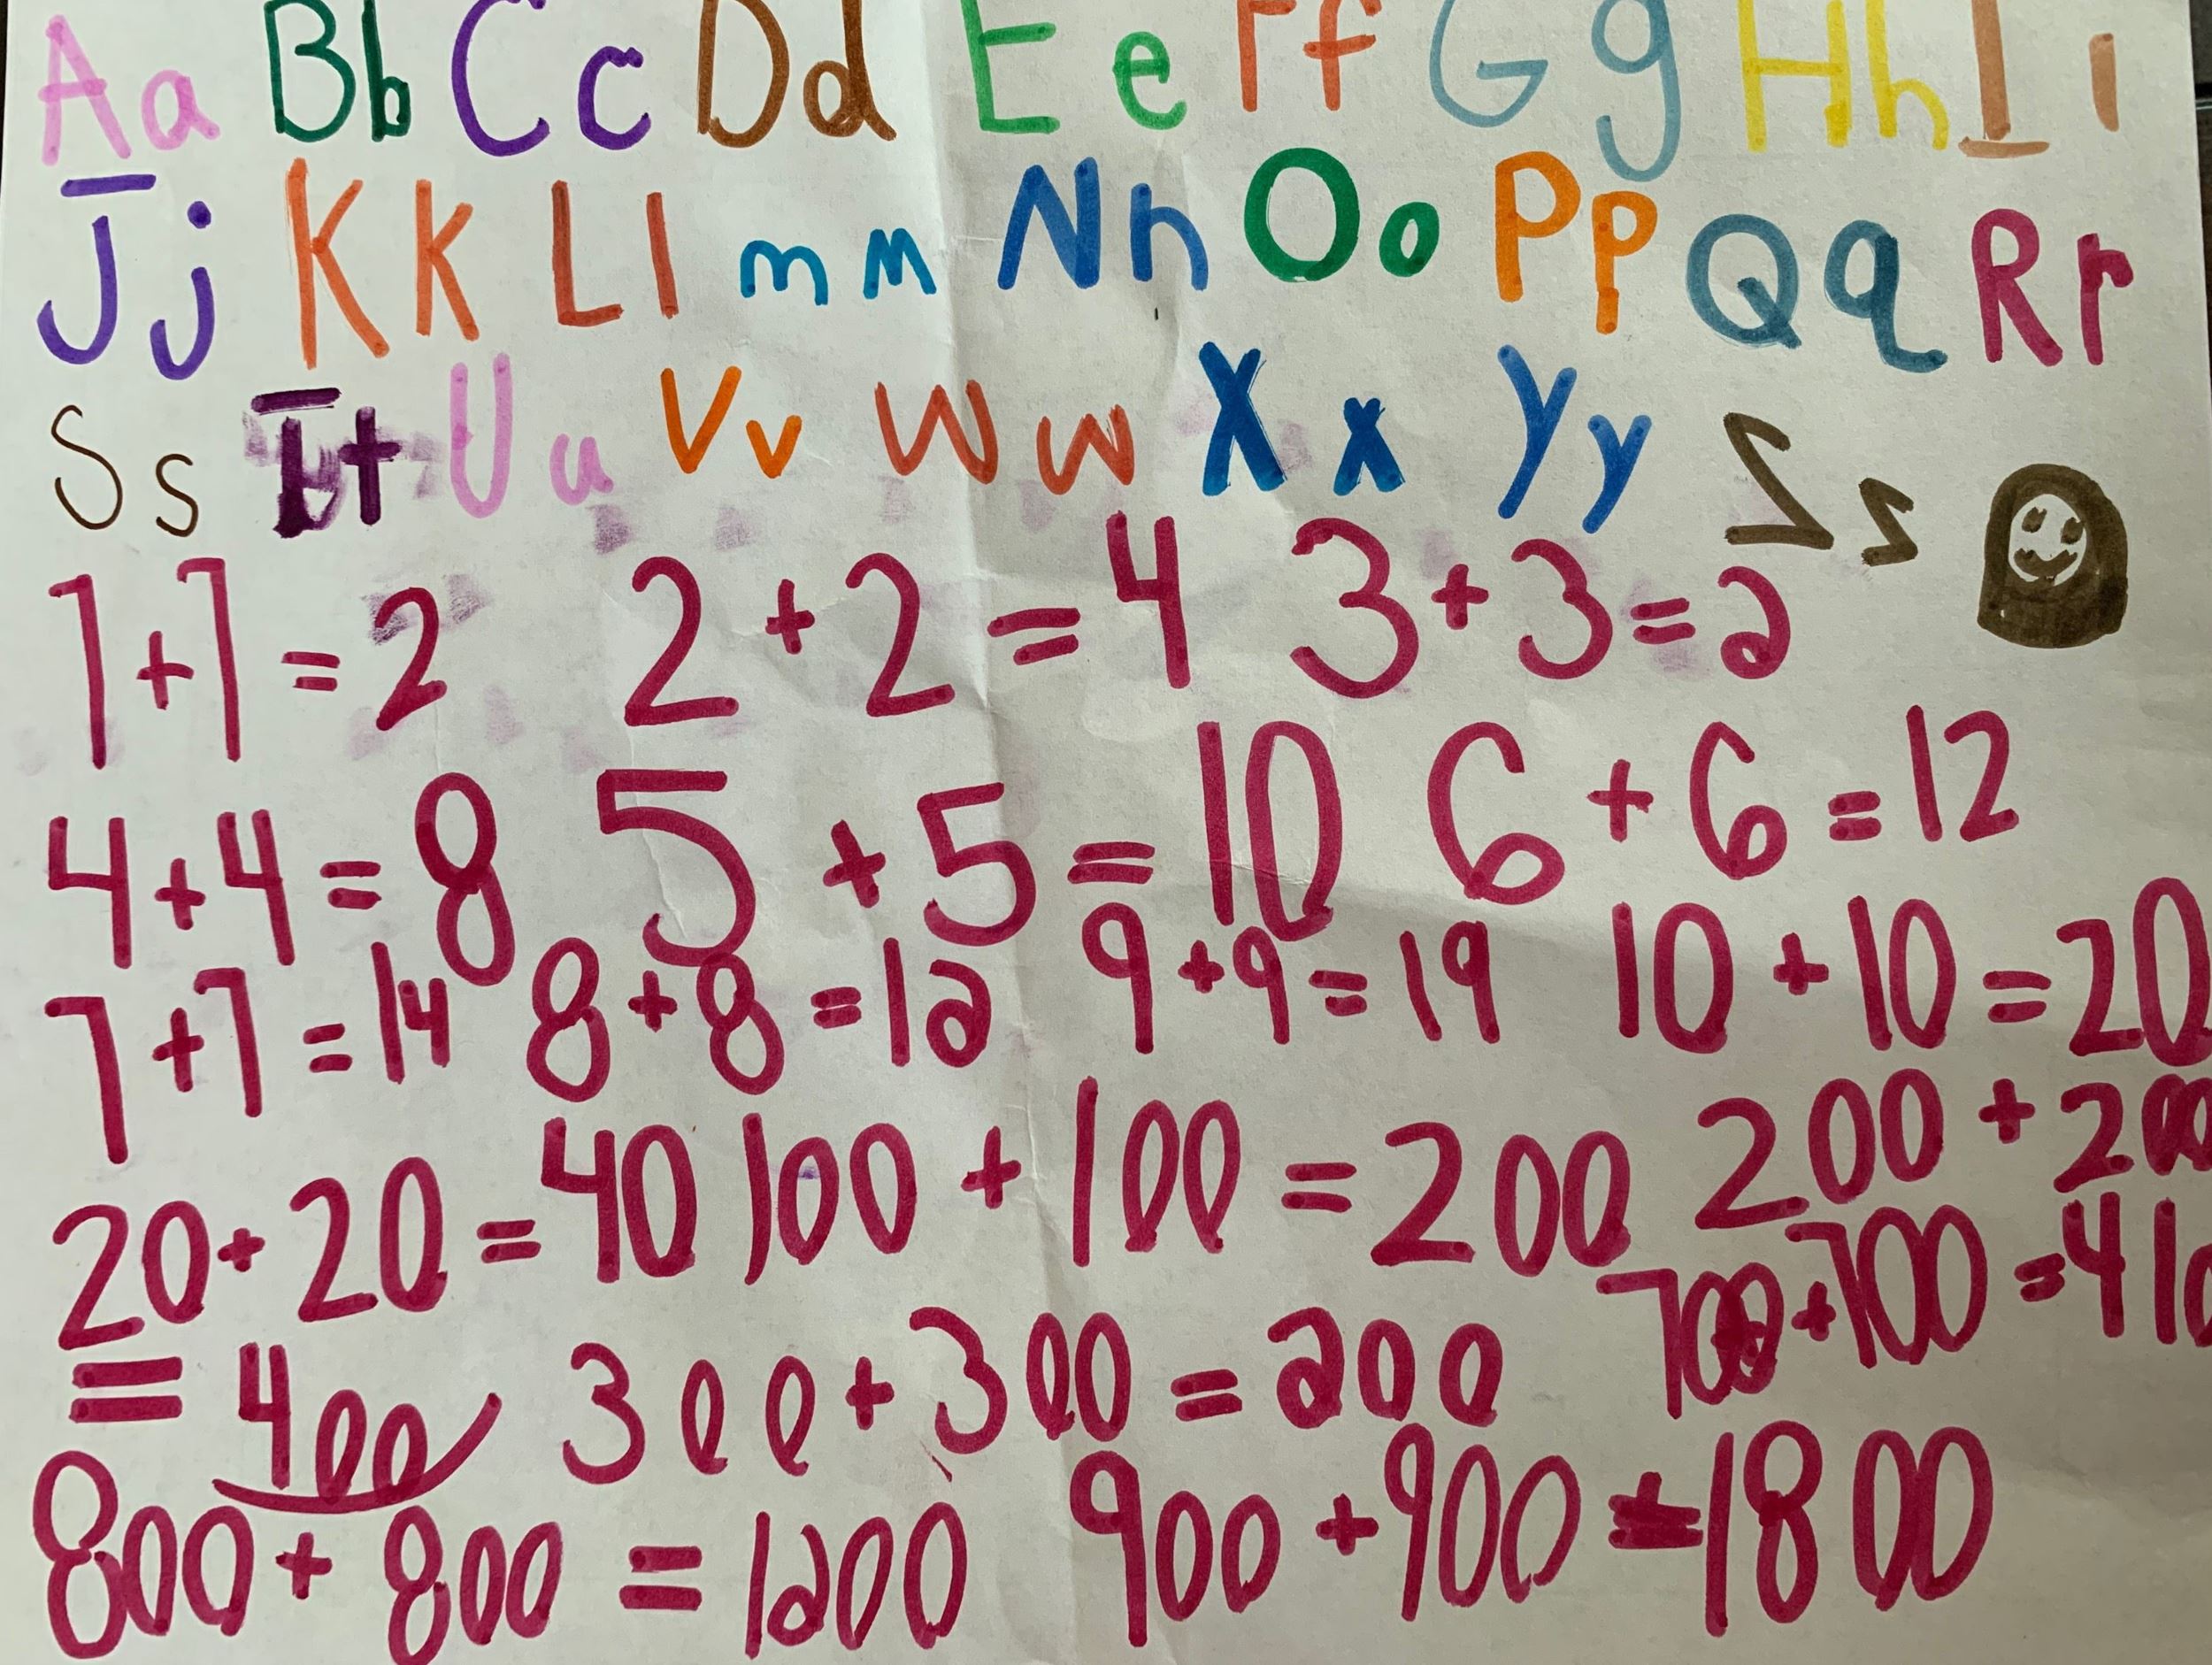 Aa Bb Cc Dd Ee Ff Gg Hh Ii
Jj Kk Ll mM Nn Oo Pp Qq Rr
Ss Tt Uu Vv Ww Xx Yy Zz
1+1=2 2+2=4 3+3=6
4+4=8 5+5=10 6+6=12
7+7=14 8+8=16 9+9=19 10+10=20
20+20=40 100+100=200 200+200
=400 300+300=600 700+700=410
800+800=1600 900+900=1800